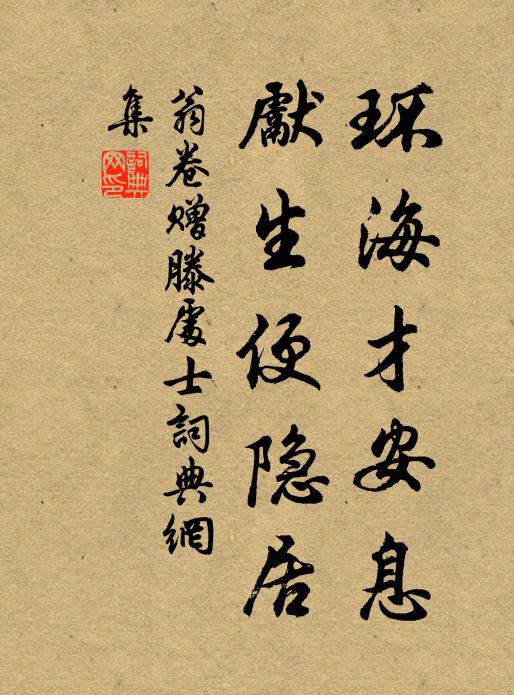 环海才安息
獻生便隐居
翁卷赠滕處士詞典網
集
詞典
网印